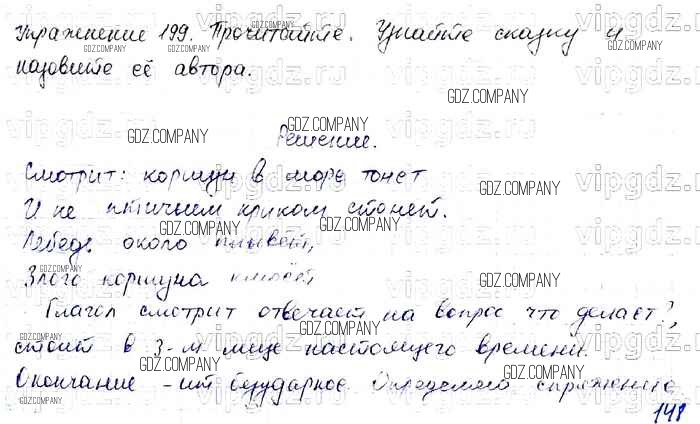 Упражнение 199. Прочитайте. Узнайте сказку и
назовите её автора.
Решение.
Смотрит: коршун в море тонет
И не птичьим криком стонет.
Лебедь около плывёт,
Злого коршуна клюёт,
Глагол смотрит отвечает на вопрос что делает?,
стоит в 3-м лице настоящего времени.
Окончание -ит безударное. Определяем спряжение
148